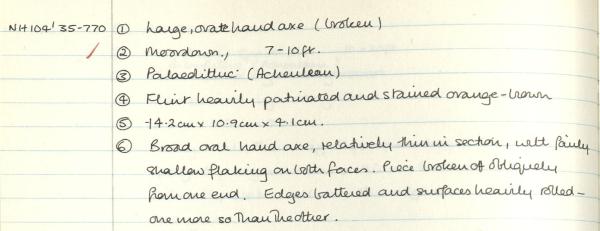 NH104'35-770 ① Large, ovate hand axe (broken)
② Moordown., 7-10ft.
③ Palaeolithic (Acheulean)
④ Flint heavily patinated and stained orange-brown
⑤ 14.2cm x 10.9cm x 4.1cm.
⑥ Broad oval hand axe, relatively thin in section, with fairly
shallow flaking on both faces. Piece broken off obliquely
from one end. Edges battered and surfaces heavily rolled -
one more so than the other.